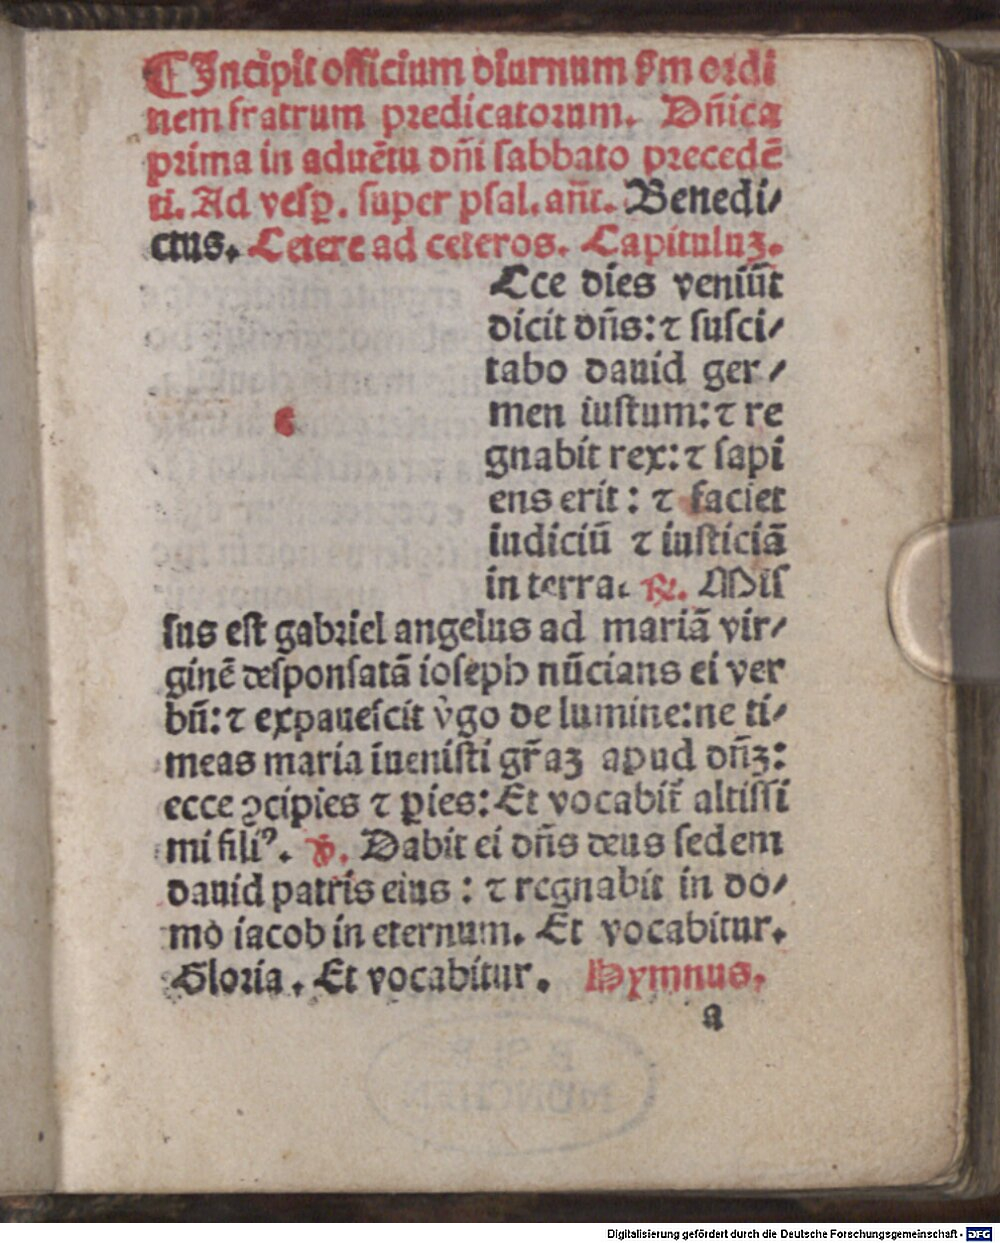 ¶ Incipit officium diurnum ẜm ordi
nem fratrum predicatorum. Dn̄ica
prima in aduētu dn̄i sabbato precedē
ti. Ad vesꝑ. super psal. an̄t. Benedi⸗
ctus. Cetere ad ceteros. Capituluꝫ.
Cce dies veniūt
dicit dn̄s: ⁊ susci⸗
tabo dauid ger⸗
men iustum: ⁊ re
gnabit rex: ⁊ sapi
ens erit: ⁊ faciet
iudiciū ⁊ iusticiā
in terra. ℟. Mis
sus est gabriel angelus ad mariā vir⸗
ginē desponsatā ioseph nūcians ei ver
bū: ⁊ expauescit v̓go de lumine: ne ti⸗
meas maria inuenisti gr̄aꝫ apud dn̄ꝫ:
ecce ꝯcipies ⁊ ꝑies: Et vocabit᷑ altissi
mi filiꝰ. ℣. Dabit ei dn̄s deus sedem
dauid patris eius: ⁊ regnabit in do⸗
mo iacob in eternum. Et vocabitur.
Gloria. Et vocabitur. Hymnus.
a
MÜNCHEN
Digitalisierung gefördert durch die Deutsche Forschungsgemeinschaft - DFG